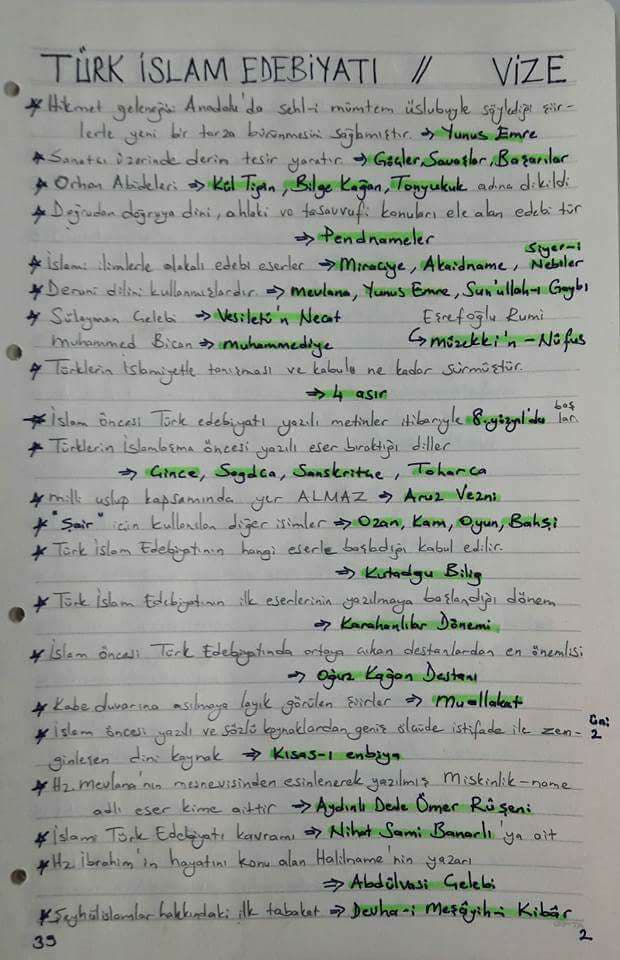 TÜRK İSLAM EDEBİYATI // VİZE
★ Hikmet geleneğini Anadolu'da sehl-i mümtem üslubuyla söylediği şiir-
lerle yeni bir tarza bürünmesini sağlamıştır. ⇒ Yunus Emre
★ Sanatçı üzerinde derin tesir yaratır. ⇒ Göçler, Savaşlar, Başarılar
★ Orhan Abideleri ⇒ Kül Tigin, Bilge Kağan, Tonyukuk adına dikildi
★ Doğrudan doğruya dini, ahlaki ve tasavvufi konuları ele alan edebi tür
⇒ Pendnameler
★ İslami ilimlerle alakalı edebi eserler ⇒ Miraciye, Akaidname, Siyer-i Nebiler
★ Deruni dilini kullanmışlardır. ⇒ Mevlana, Yunus Emre, Sun'ullah-ı Gaybi
★ Süleyman Çelebi ⇒ Vesiletü'n Necat Eşrefoğlu Rumi
Muhammed Bican ⇒ Muhammediye ↳ Müzekki'n-Nüfus
★ Türklerin İslamiyetle tanışması ve kabulü ne kadar sürmüştür.
⇒ 4 asır
★ İslam öncesi Türk edebiyatı yazılı metinler itibariyle 8.yüzyıl'da başlar.
★ Türklerin İslamlaşma öncesi yazılı eser bıraktığı diller
⇒ Çince, Sogdca, Sanskritçe, Toharca
★ milli uslup kapsamında yer ALMAZ ⇒ Aruz Vezni
★ "Şair" için kullanılan diğer isimler ⇒ Ozan, Kam, Oyun, Bahşi
★ Türk İslam Edebiyatının hangi eserle başladığı kabul edilir.
⇒ Kutadgu Bilig
★ Türk İslam Edebiyatının ilk eserlerinin yazılmaya başlandığı dönem
⇒ Karahanlılar Dönemi
★ İslam öncesi Türk Edebiyatında ortaya çıkan destanlardan en önemlisi
⇒ Oğuz Kağan Destanı
★ Kabe duvarına asılmaya layık görülen şiirler ⇒ Muallakat
★ İslam öncesi yazılı ve sözlü kaynaklardan geniş ölçüde istifade ile zen- Üni 2
ginleşen dini kaynak ⇒ Kısas-ı enbiya
★ Hz. Mevlana'nın mesnevisinden esinlenerek yazılmış Miskinlik-name
adlı eser kime aittir ⇒ Aydınlı Dede Ömer Rûşeni
★ İslami Türk Edebiyatı kavramı ⇒ Nihat Sami Banarlı ya ait
★ Hz İbrahim'in hayatını konu alan Halilname'nin yazarı
⇒ Abdülvasi Çelebi
★ Şeyhülislamlar hakkındaki ilk tabakat ⇒ Devha-i Meşâyih-i Kibâr
39 2